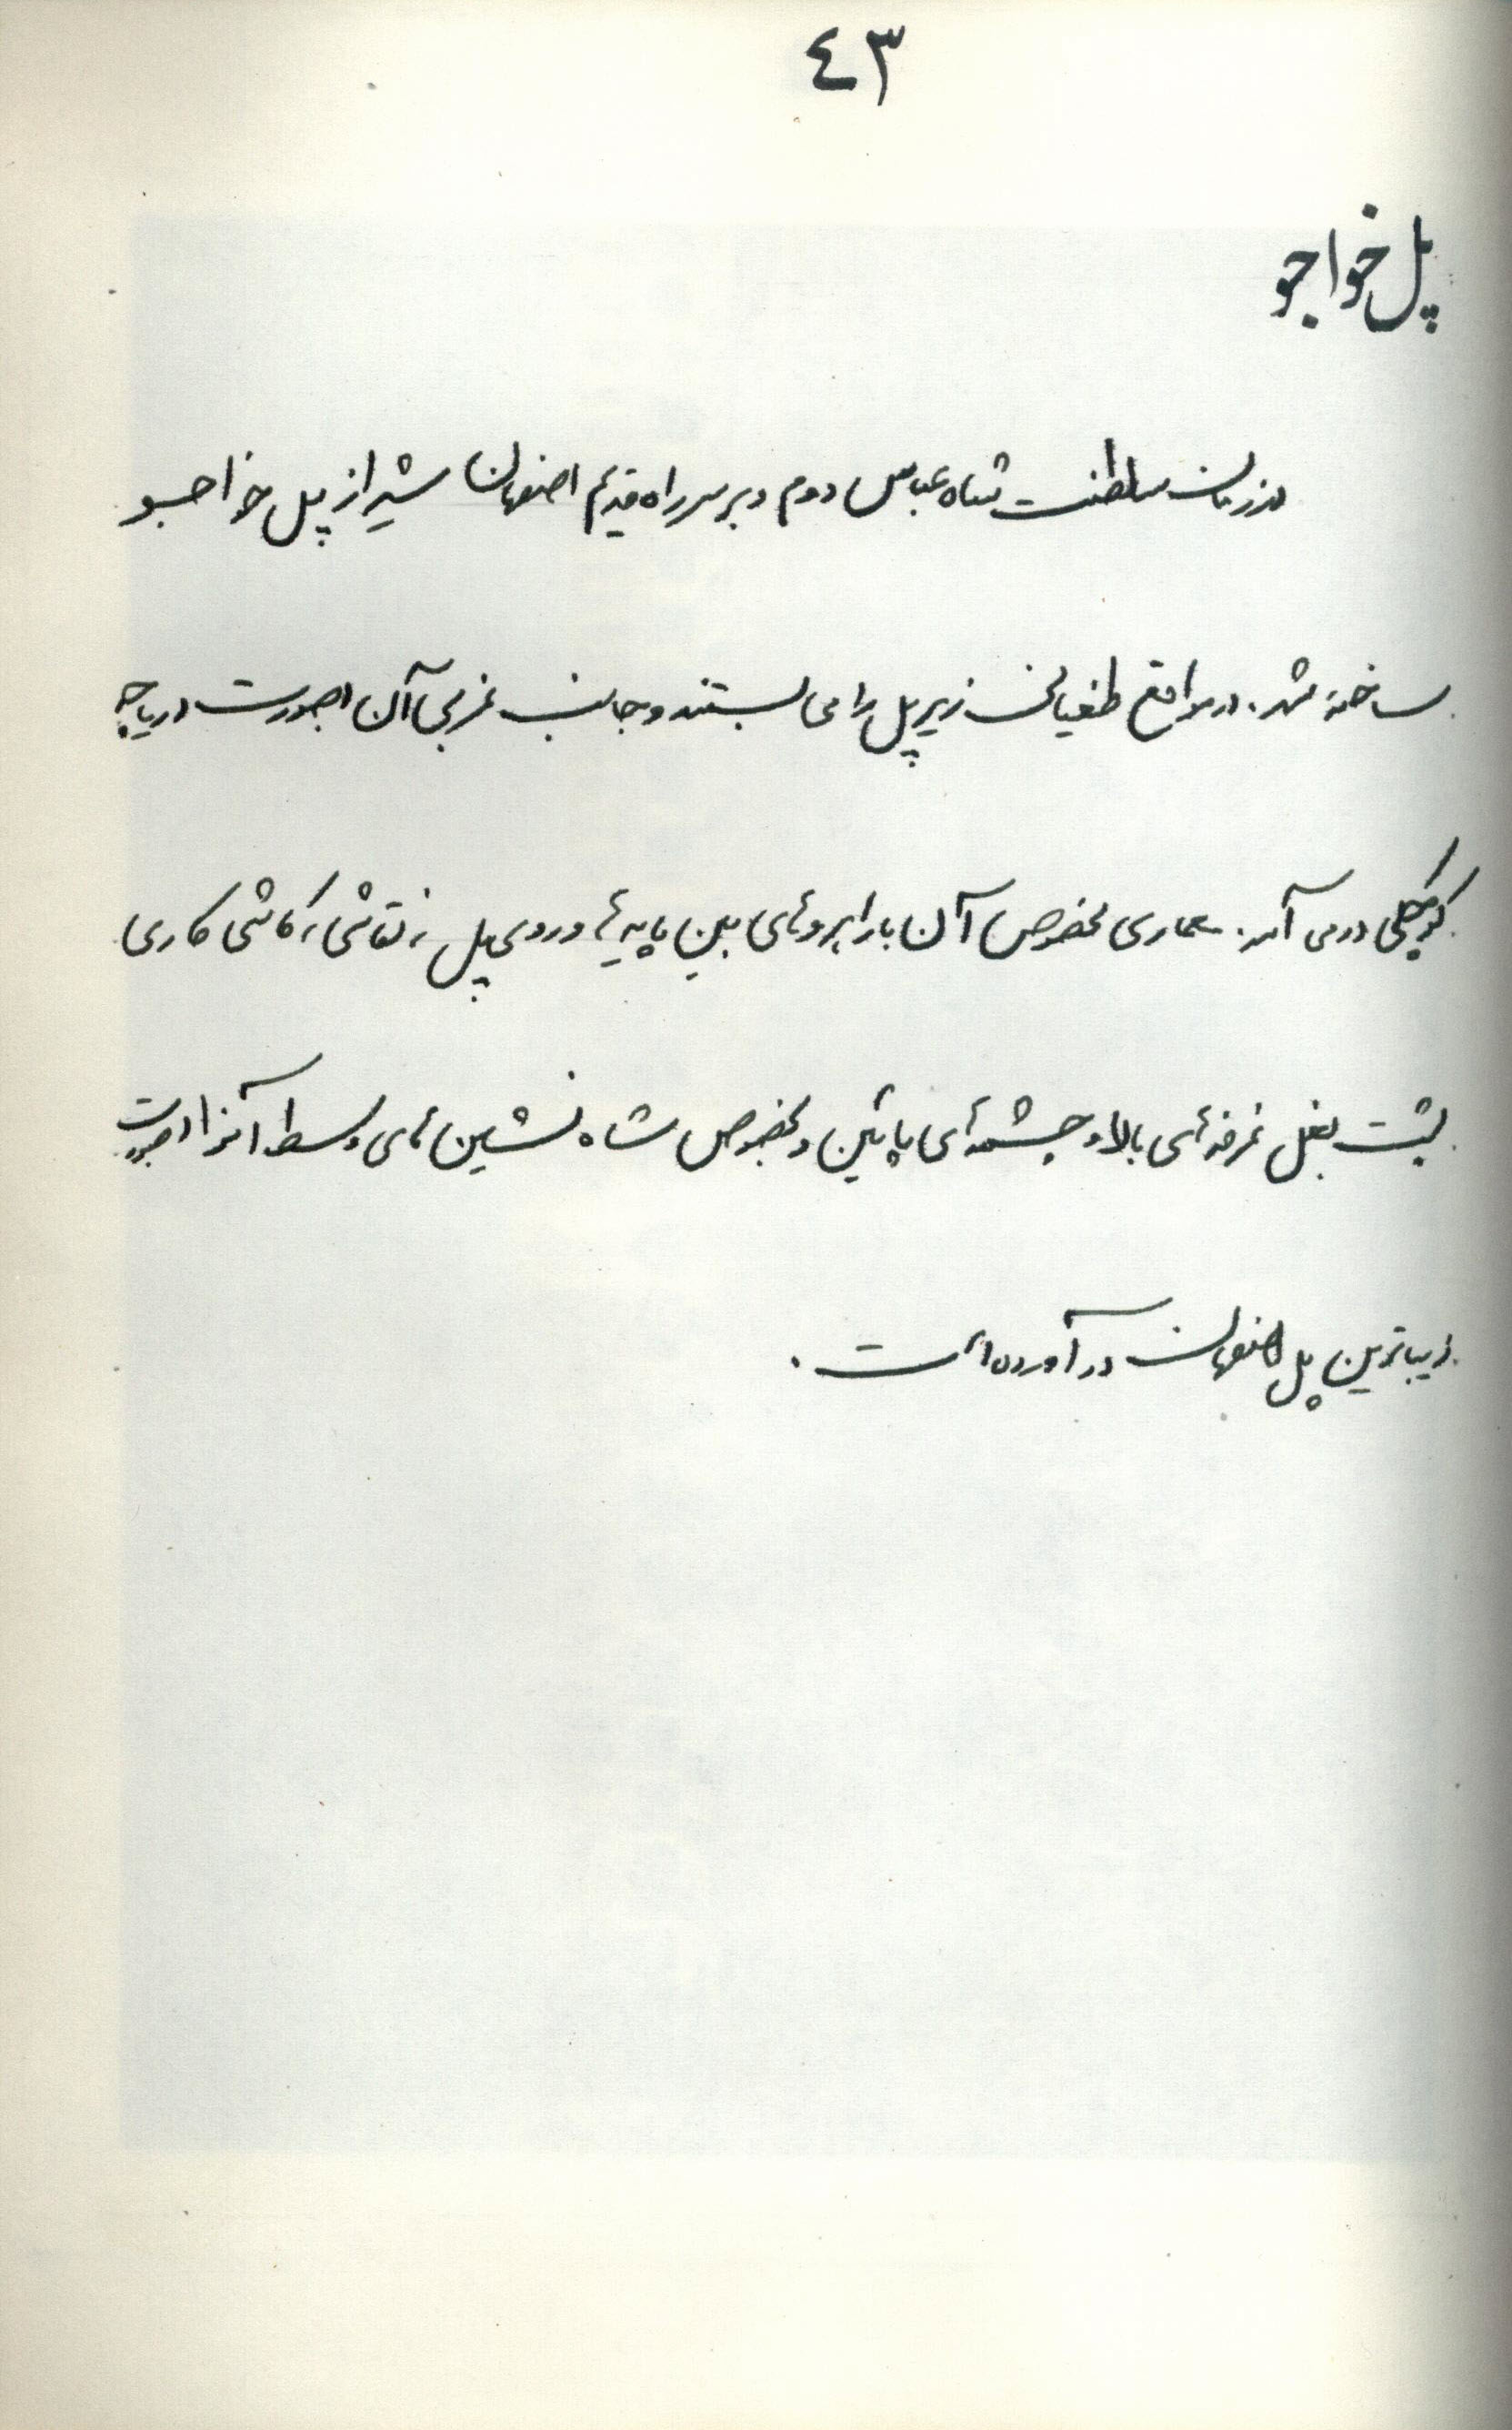 ٤٣
پل خواجو
در زمان سلطنت شاه عباس دوم و بر سر راه قدیم اصفهان شیراز پل خواجو
ساخته شد. در مواقع طغیان زیر پل را می بستند و جانب غربی آن بصورت دریاچه
کوچکی درمی آمد. معماری مخصوص آن با راهروهای بین پایه ها و روی پل، نقاشی، کاشی کاری
پشت بغل غرفه های بالا و چشمه های پائین و بخصوص شاه نشین های وسط آنرا بصورت
زیباترین پل اصفهان در آورده است.